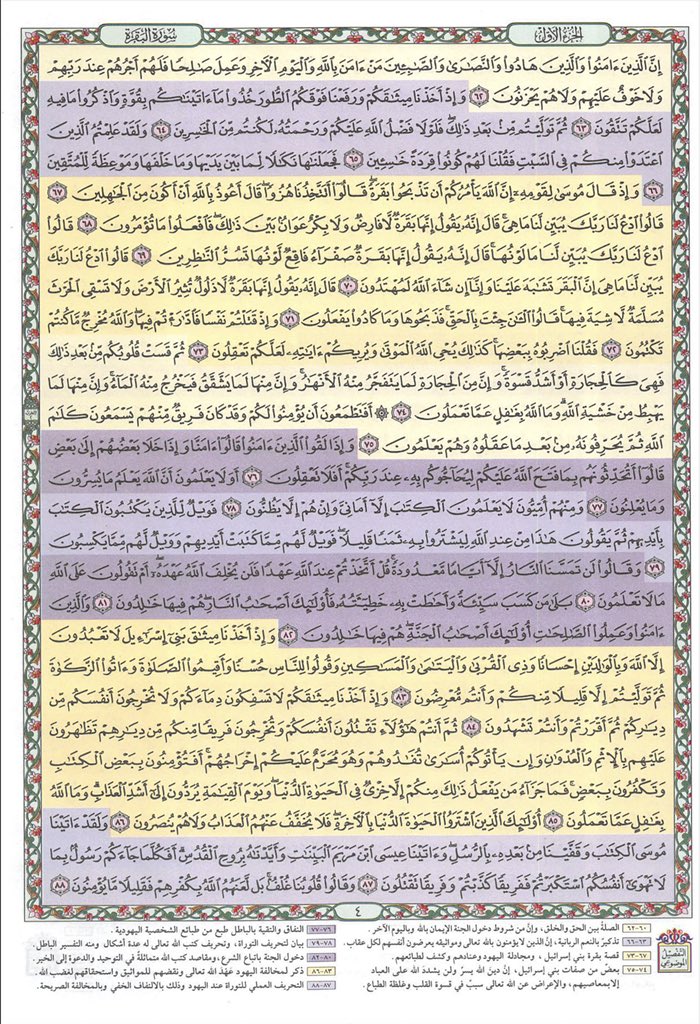 الجُزْءُ الأَوَّلُ
سُورَةُ البَقَرَةِ
إِنَّ ٱلَّذِينَ ءَامَنُوا۟ وَٱلَّذِينَ هَادُوا۟ وَٱلنَّصَـٰرَىٰ وَٱلصَّـٰبِـِٔينَ مَنْ ءَامَنَ بِٱللَّهِ وَٱلْيَوْمِ ٱلْـَٔاخِرِ وَعَمِلَ صَـٰلِحًا فَلَهُمْ أَجْرُهُمْ عِندَ رَبِّهِمْ
وَلَا خَوْفٌ عَلَيْهِمْ وَلَا هُمْ يَحْزَنُونَ ٦٢ وَإِذْ أَخَذْنَا مِيثَـٰقَكُمْ وَرَفَعْنَا فَوْقَكُمُ ٱلطُّورَ خُذُوا۟ مَآ ءَاتَيْنَـٰكُم بِقُوَّةٍ وَٱذْكُرُوا۟ مَا فِيهِ
لَعَلَّكُمْ تَتَّقُونَ ٦٣ ثُمَّ تَوَلَّيْتُم مِّنۢ بَعْدِ ذَٰلِكَ ۖ فَلَوْلَا فَضْلُ ٱللَّهِ عَلَيْكُمْ وَرَحْمَتُهُۥ لَكُنتُم مِّنَ ٱلْخَـٰسِرِينَ ٦٤ وَلَقَدْ عَلِمْتُمُ ٱلَّذِينَ
ٱعْتَدَوْا۟ مِنكُمْ فِى ٱلسَّبْتِ فَقُلْنَا لَهُمْ كُونُوا۟ قِرَدَةً خَـٰسِـِٔينَ ٦٥ فَجَعَلْنَـٰهَا نَكَـٰلًا لِّمَا بَيْنَ يَدَيْهَا وَمَا خَلْفَهَا وَمَوْعِظَةً لِّلْمُتَّقِينَ
٦٦ وَإِذْ قَالَ مُوسَىٰ لِقَوْمِهِۦٓ إِنَّ ٱللَّهَ يَأْمُرُكُمْ أَن تَذْبَحُوا۟ بَقَرَةً ۖ قَالُوٓا۟ أَتَتَّخِذُنَا هُزُوًا ۖ قَالَ أَعُوذُ بِٱللَّهِ أَنْ أَكُونَ مِنَ ٱلْجَـٰهِلِينَ ٦٧
قَالُوا۟ ٱدْعُ لَنَا رَبَّكَ يُبَيِّن لَّنَا مَا هِىَ ۚ قَالَ إِنَّهُۥ يَقُولُ إِنَّهَا بَقَرَةٌ لَّا فَارِضٌ وَلَا بِكْرٌ عَوَانٌۢ بَيْنَ ذَٰلِكَ ۖ فَٱفْعَلُوا۟ مَا تُؤْمَرُونَ ٦٨ قَالُوا۟
ٱدْعُ لَنَا رَبَّكَ يُبَيِّن لَّنَا مَا لَوْنُهَا ۚ قَالَ إِنَّهُۥ يَقُولُ إِنَّهَا بَقَرَةٌ صَفْرَآءُ فَاقِعٌ لَّوْنُهَا تَسُرُّ ٱلنَّـٰظِرِينَ ٦٩ قَالُوا۟ ٱدْعُ لَنَا رَبَّكَ
يُبَيِّن لَّنَا مَا هِىَ إِنَّ ٱلْبَقَرَ تَشَـٰبَهَ عَلَيْنَا وَإِنَّآ إِن شَآءَ ٱللَّهُ لَمُهْتَدُونَ ٧٠ قَالَ إِنَّهُۥ يَقُولُ إِنَّهَا بَقَرَةٌ لَّا ذَلُولٌ تُثِيرُ ٱلْأَرْضَ وَلَا تَسْقِى ٱلْحَرْثَ
مُسَلَّمَةٌ لَّا شِيَةَ فِيهَا ۚ قَالُوا۟ ٱلْـَٔـٰنَ جِئْتَ بِٱلْحَقِّ ۚ فَذَبَحُوهَا وَمَا كَادُوا۟ يَفْعَلُونَ ٧١ وَإِذْ قَتَلْتُمْ نَفْسًا فَٱدَّٰرَْٰٔتُمْ فِيهَا ۖ وَٱللَّهُ مُخْرِجٌ مَّا كُنتُمْ
تَكْتُمُونَ ٧٢ فَقُلْنَا ٱضْرِبُوهُ بِبَعْضِهَا ۚ كَذَٰلِكَ يُحْىِ ٱللَّهُ ٱلْمَوْتَىٰ وَيُرِيكُمْ ءَايَـٰتِهِۦ لَعَلَّكُمْ تَعْقِلُونَ ٧٣ ثُمَّ قَسَتْ قُلُوبُكُم مِّنۢ بَعْدِ ذَٰلِكَ
فَهِىَ كَٱلْحِجَارَةِ أَوْ أَشَدُّ قَسْوَةً ۚ وَإِنَّ مِنَ ٱلْحِجَارَةِ لَمَا يَتَفَجَّرُ مِنْهُ ٱلْأَنْهَـٰرُ ۚ وَإِنَّ مِنْهَا لَمَا يَشَّقَّقُ فَيَخْرُجُ مِنْهُ ٱلْمَآءُ ۚ وَإِنَّ مِنْهَا لَمَا
يَهْبِطُ مِنْ خَشْيَةِ ٱللَّهِ ۗ وَمَا ٱللَّهُ بِغَـٰفِلٍ عَمَّا تَعْمَلُونَ ٧٤ ۞ أَفَتَطْمَعُونَ أَن يُؤْمِنُوا۟ لَكُمْ وَقَدْ كَانَ فَرِيقٌ مِّنْهُمْ يَسْمَعُونَ كَلَـٰمَ
ٱللَّهِ ثُمَّ يُحَرِّفُونَهُۥ مِنۢ بَعْدِ مَا عَقَلُوهُ وَهُمْ يَعْلَمُونَ ٧٥ وَإِذَا لَقُوا۟ ٱلَّذِينَ ءَامَنُوا۟ قَالُوٓا۟ ءَامَنَّا وَإِذَا خَلَا بَعْضُهُمْ إِلَىٰ بَعْضٍ
قَالُوٓا۟ أَتُحَدِّثُونَهُم بِمَا فَتَحَ ٱللَّهُ عَلَيْكُمْ لِيُحَآجُّوكُم بِهِۦ عِندَ رَبِّكُمْ ۚ أَفَلَا تَعْقِلُونَ ٧٦ أَوَلَا يَعْلَمُونَ أَنَّ ٱللَّهَ يَعْلَمُ مَا يُسِرُّونَ
وَمَا يُعْلِنُونَ ٧٧ وَمِنْهُمْ أُمِّيُّونَ لَا يَعْلَمُونَ ٱلْكِتَـٰبَ إِلَّآ أَمَانِىَّ وَإِنْ هُمْ إِلَّا يَظُنُّونَ ٧٨ فَوَيْلٌ لِّلَّذِينَ يَكْتُبُونَ ٱلْكِتَـٰبَ
بِأَيْدِيهِمْ ثُمَّ يَقُولُونَ هَـٰذَا مِنْ عِندِ ٱللَّهِ لِيَشْتَرُوا۟ بِهِۦ ثَمَنًا قَلِيلًا ۖ فَوَيْلٌ لَّهُم مِّمَّا كَتَبَتْ أَيْدِيهِمْ وَوَيْلٌ لَّهُم مِّمَّا يَكْسِبُونَ
٧٩ وَقَالُوا۟ لَن تَمَسَّنَا ٱلنَّارُ إِلَّآ أَيَّامًا مَّعْدُودَةً ۚ قُلْ أَتَّخَذْتُمْ عِندَ ٱللَّهِ عَهْدًا فَلَن يُخْلِفَ ٱللَّهُ عَهْدَهُۥٓ ۖ أَمْ تَقُولُونَ عَلَى ٱللَّهِ
مَا لَا تَعْلَمُونَ ٨٠ بَلَىٰ مَن كَسَبَ سَيِّئَةً وَأَحَـٰطَتْ بِهِۦ خَطِيٓـَٔتُهُۥ فَأُو۟لَـٰٓئِكَ أَصْحَـٰبُ ٱلنَّارِ ۖ هُمْ فِيهَا خَـٰلِدُونَ ٨١ وَٱلَّذِينَ
ءَامَنُوا۟ وَعَمِلُوا۟ ٱلصَّـٰلِحَـٰتِ أُو۟لَـٰٓئِكَ أَصْحَـٰبُ ٱلْجَنَّةِ ۖ هُمْ فِيهَا خَـٰلِدُونَ ٨٢ وَإِذْ أَخَذْنَا مِيثَـٰقَ بَنِىٓ إِسْرَٰٓءِيلَ لَا تَعْبُدُونَ
إِلَّا ٱللَّهَ وَبِٱلْوَٰلِدَيْنِ إِحْسَانًا وَذِى ٱلْقُرْبَىٰ وَٱلْيَتَـٰمَىٰ وَٱلْمَسَـٰكِينِ وَقُولُوا۟ لِلنَّاسِ حُسْنًا وَأَقِيمُوا۟ ٱلصَّلَوٰةَ وَءَاتُوا۟ ٱلزَّكَوٰةَ
ثُمَّ تَوَلَّيْتُمْ إِلَّا قَلِيلًا مِّنكُمْ وَأَنتُم مُّعْرِضُونَ ٨٣ وَإِذْ أَخَذْنَا مِيثَـٰقَكُمْ لَا تَسْفِكُونَ دِمَآءَكُمْ وَلَا تُخْرِجُونَ أَنفُسَكُم مِّن
دِيَـٰرِكُمْ ثُمَّ أَقْرَرْتُمْ وَأَنتُمْ تَشْهَدُونَ ٨٤ ثُمَّ أَنتُمْ هَـٰٓؤُلَآءِ تَقْتُلُونَ أَنفُسَكُمْ وَتُخْرِجُونَ فَرِيقًا مِّنكُم مِّن دِيَـٰرِهِمْ تَظَـٰهَرُونَ
عَلَيْهِم بِٱلْإِثْمِ وَٱلْعُدْوَٰنِ وَإِن يَأْتُوكُمْ أُسَـٰرَىٰ تُفَـٰدُوهُمْ وَهُوَ مُحَرَّمٌ عَلَيْكُمْ إِخْرَاجُهُمْ ۚ أَفَتُؤْمِنُونَ بِبَعْضِ ٱلْكِتَـٰبِ
وَتَكْفُرُونَ بِبَعْضٍ ۚ فَمَا جَزَآءُ مَن يَفْعَلُ ذَٰلِكَ مِنكُمْ إِلَّا خِزْىٌ فِى ٱلْحَيَوٰةِ ٱلدُّنْيَا ۖ وَيَوْمَ ٱلْقِيَـٰمَةِ يُرَدُّونَ إِلَىٰٓ أَشَدِّ ٱلْعَذَابِ ۗ وَمَا ٱللَّهُ
بِغَـٰفِلٍ عَمَّا تَعْمَلُونَ ٨٥ أُو۟لَـٰٓئِكَ ٱلَّذِينَ ٱشْتَرَوُا۟ ٱلْحَيَوٰةَ ٱلدُّنْيَا بِٱلْـَٔاخِرَةِ ۖ فَلَا يُخَفَّفُ عَنْهُمُ ٱلْعَذَابُ وَلَا هُمْ يُنصَرُونَ ٨٦ وَلَقَدْ ءَاتَيْنَا
مُوسَى ٱلْكِتَـٰبَ وَقَفَّيْنَا مِنۢ بَعْدِهِۦ بِٱلرُّسُلِ ۖ وَءَاتَيْنَا عِيسَى ٱبْنَ مَرْيَمَ ٱلْبَيِّنَـٰتِ وَأَيَّدْنَـٰهُ بِرُوحِ ٱلْقُدُسِ ۗ أَفَكُلَّمَا جَآءَكُمْ رَسُولٌۢ بِمَا
لَا تَهْوَىٰٓ أَنفُسُكُمُ ٱسْتَكْبَرْتُمْ فَفَرِيقًا كَذَّبْتُمْ وَفَرِيقًا تَقْتُلُونَ ٨٧ وَقَالُوا۟ قُلُوبُنَا غُلْفٌۢ ۚ بَل لَّعَنَهُمُ ٱللَّهُ بِكُفْرِهِمْ فَقَلِيلًا مَّا يُؤْمِنُونَ ٨٨
٤
التفصيل الموضوعي
٦٠-٦٢ الصلة بين الحق والخلق، وإنّ من شروط دخول الجنة الإيمان بالله وباليوم الآخر.
٦٣-٦٦ تذكيرٌ بالنعم الربانية، إنّ الذين لا يؤمنون بالله تعالى ومواثيقه يعرضون أنفسهم لكل عقاب.
٦٧-٧٣ قصة بقرة بني إسرائيل، ومجادلة اليهود وعنادهم وكشف لطبائعهم.
٧٤-٧٥ بعضٌ من صفات بني إسرائيل، إنّ دين الله يسرٌ ولن يشدد الله على العباد
إلا بمعاصيهم، والإعراض عن الله تعالى سببٌ في قسوة القلب وغلظة الطباع.
٧٦-٧٧ النفاق والتقية بالباطل طبع من طبائع الشخصية اليهودية.
٧٨-٧٩ بيان لتحريف التوراة، وتحريف كتب الله تعالى له عدة أشكال ومنه التفسير الباطل.
٨٠-٨٢ دخول الجنة باتباع الشرع، ومقاصد كتب الله متماثلةٌ في التوحيد والدعوة إلى الخير.
٨٣-٨٦ ذكر لمخالفة اليهود عَهْدَ الله تعالى ونقضهم للمواثيق واستحقاقهم لغضب الله.
٨٧-٨٨ التحريف العملي للتوراة عند اليهود وذلك بالالتفاف الخفي وبالمخالفة الصريحة.